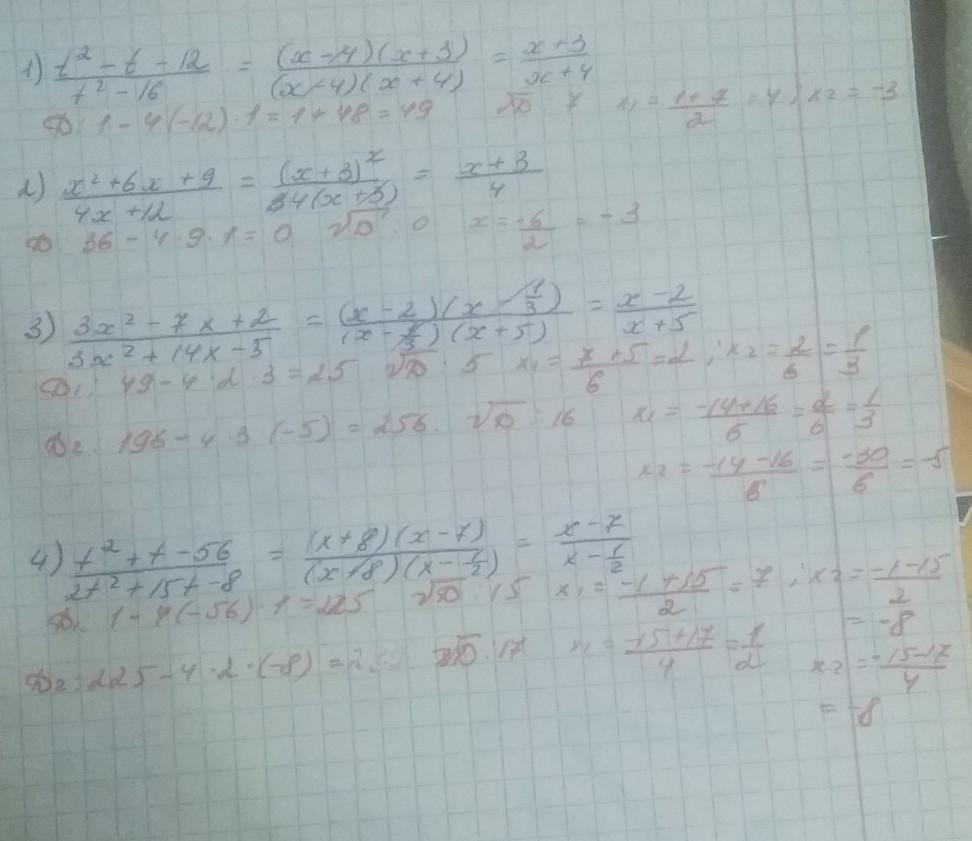 1) (t² - t - 12)/(t² - 16) = ((x-4)(x+3))/((x-4)(x+4)) = (x+3)/(x+4)
D: 1 - 4(-12)·1 = 1 + 48 = 49 √D: 7 x₁ = (1+7)/2 = 4; x₂ = -3
2) (x² + 6x + 9)/(4x + 12) = (x+3)²/(4(x+3)) = (x+3)/4
D: 36 - 4·9·1 = 0 √D: 0 x = -6/2 = -3
3) (3x² - 7x + 2)/(3x² + 14x - 5) = ((x-2)(x-1/3))/((x-1/3)(x+5)) = (x-2)/(x+5)
D₁: 49 - 4·2·3 = 25 √D: 5 x₁ = (7+5)/6 = 2; x₂ = 2/6 = 1/3
D₂: 196 - 4·3(-5) = 256. √D: 16 x₁ = (-14+16)/6 = 2/6 = 1/3
x₂ = (-14-16)/6 = -30/6 = -5
4) (t² + t - 56)/(2t² + 15t - 8) = ((x+8)(x-7))/((x+8)(x-1/2)) = (x-7)/(x-1/2)
D₁: 1 - 4(-56)·1 = 225 √D: 15 x₁ = (-1+15)/2 = 7; x₂ = (-1-15)/2
= -8
D₂: 225 - 4·2·(-8) = √D: 17 x₁ = (-15+17)/4 = 1/2 x₂ = (-15-17)/4
= -8